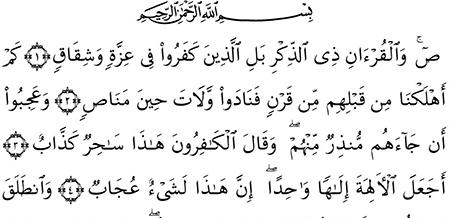 بِسْمِ ٱللَّهِ ٱلرَّحْمَٰنِ ٱلرَّحِيمِ
صٓ ۚ وَٱلْقُرْءَانِ ذِى ٱلذِّكْرِ بَلِ ٱلَّذِينَ كَفَرُوا۟ فِى عِزَّةٍ وَشِقَاقٍ ﴿١﴾ كَمْ
أَهْلَكْنَا مِن قَبْلِهِم مِّن قَرْنٍ فَنَادَوا۟ وَّلَاتَ حِينَ مَنَاصٍ ﴿٢﴾ وَعَجِبُوٓا۟
أَن جَآءَهُم مُّنذِرٌ مِّنْهُمْ ۖ وَقَالَ ٱلْكَٰفِرُونَ هَٰذَا سَٰحِرٌ كَذَّابٌ ﴿٣﴾
أَجَعَلَ ٱلْءَالِهَةَ إِلَٰهًا وَٰحِدًا ۖ إِنَّ هَٰذَا لَشَىْءٌ عُجَابٌ ﴿٤﴾ وَٱنطَلَقَ